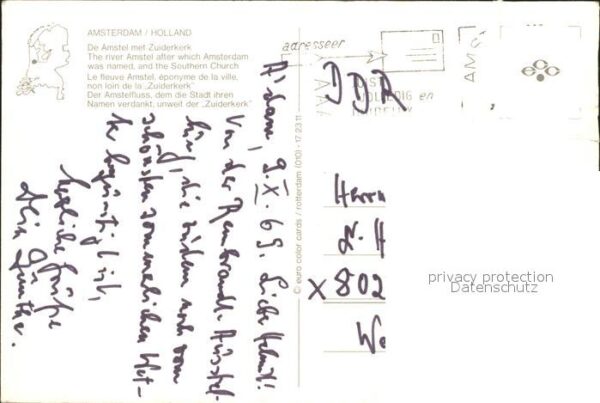 AMSTERDAM / HOLLAND
De Amstel met Zuiderkerk
The river Amstel after which Amsterdam
was named, and the Southern Church
Le fleuve Amstel, éponyme de la ville,
non loin de la „Zuiderkerk"
Der Amstelfluss, dem die Stadt ihren
Namen verdankt, unweit der „Zuiderkerk"
A'dam, 9.X.69. Liebe Helmut!
Von der Rembrandt-Ausstel-
lung, die zudem noch vom
schönsten sommerlichen Wet-
te begünstigt ist,
herzliche Grüße
Dein Günther.
© euro color cards / rotterdam (010) - 17 23 11
adresseer
VOLLEDIG en
AMS
DDR
Herrn
H
X 802
privacy protection
Datenschutz